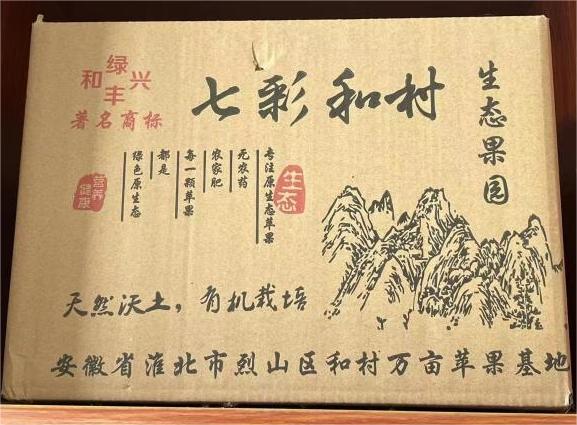 绿
和 兴
丰
著名商标
七彩和村
生态果园
生态
专注原生态苹果
无农药
农家肥
每一颗苹果
都是
绿色原生态
营养
健康
天然沃土，有机栽培
安徽省淮北市烈山区和村万亩苹果基地